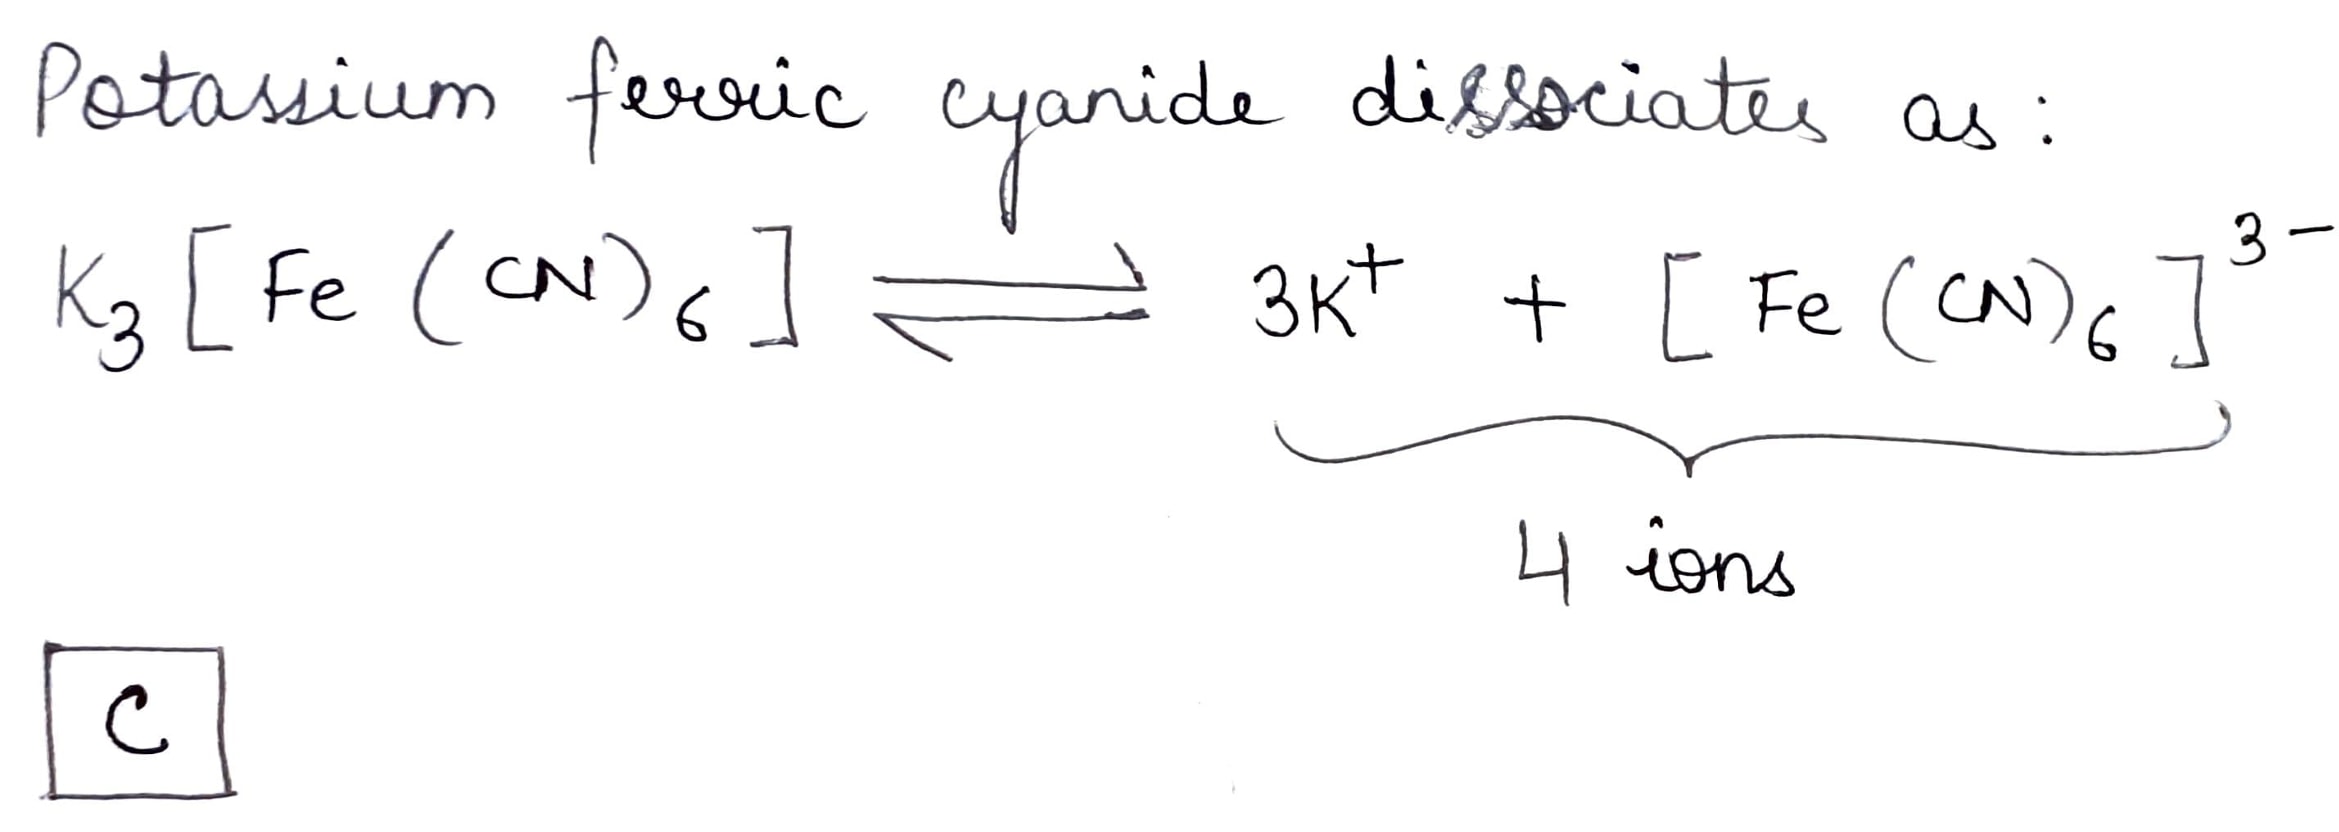 Potassium ferric cyanide dissociates as :
K₃ [ Fe ( CN )₆ ] ⇌ 3K⁺ + [ Fe ( CN )₆ ]³⁻
4 ions
C